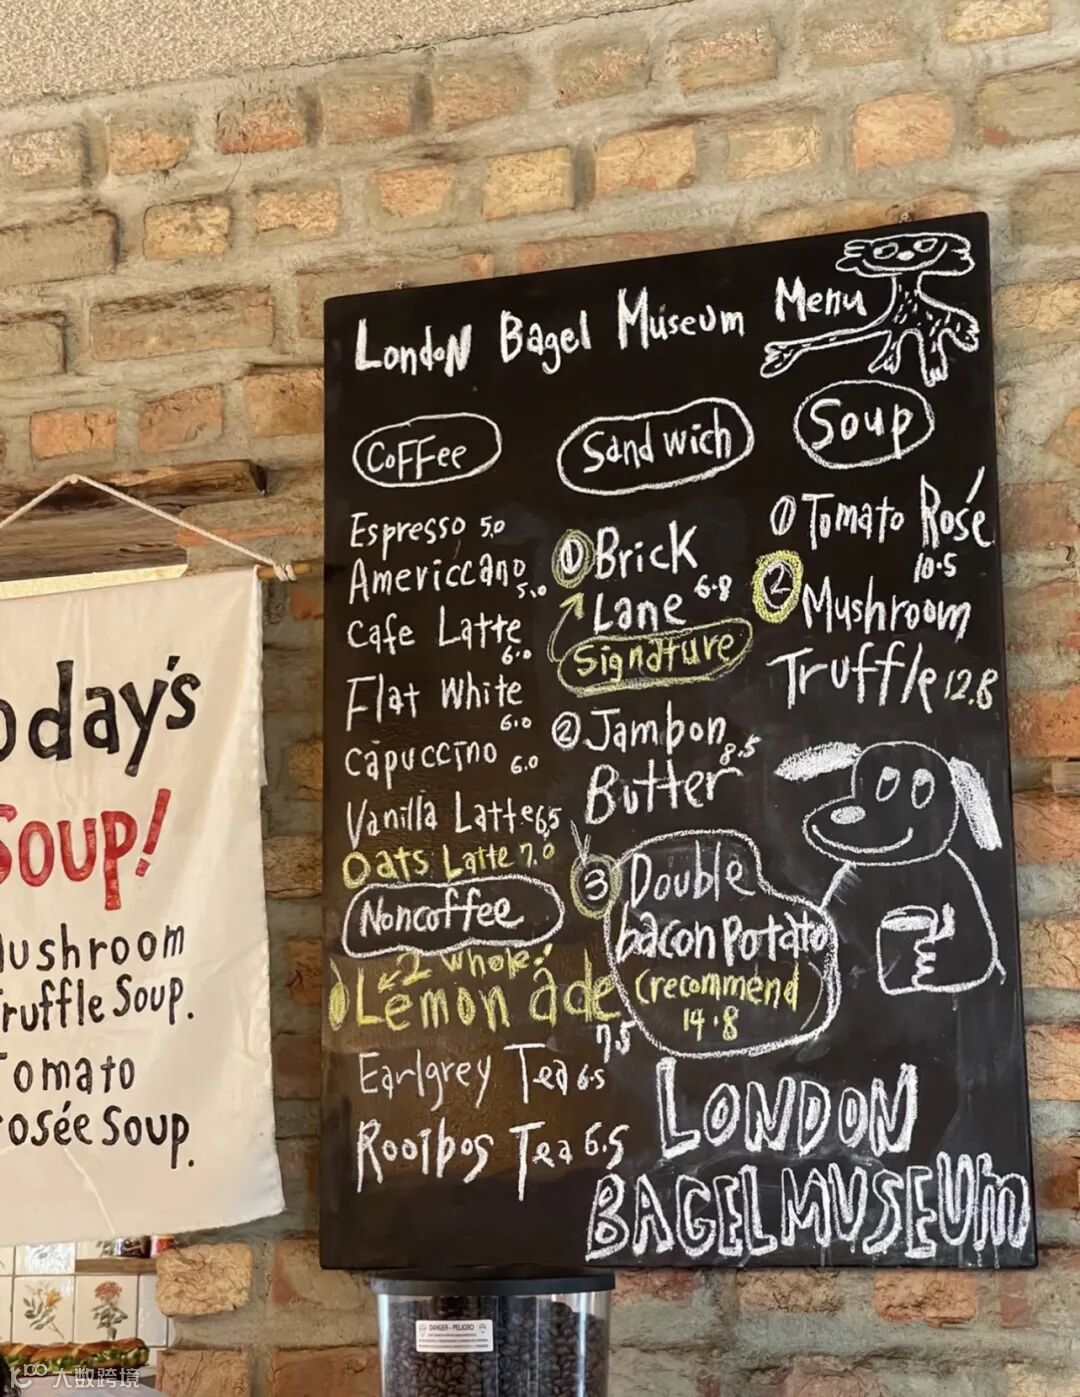 London Bagel Museum Menu
Coffee
Espresso 5.0
Americcano
5.0
Cafe Latte
6.0
Flat White
6.0
Capuccino 6.0
Vanilla Latte 6.5
Oats Latte 7.0
Noncoffee
2 whole!
Lemon ade
7.5
Earlgrey Tea 6.5
Rooibos Tea 6.5
Sandwich
① Brick
Lane 6.8
Signature
② Jambon 8.5
Butter
③ Double
bacon Potato
(recommend
14.8
Soup
① Tomato Rosé
10.5
② Mushroom
Truffle 12.8
LONDON
BAGEL MUSEUM
oday's
Soup!
Mushroom
Truffle Soup.
Tomato
rosée Soup.
DANGER - PELIGRO
大数跨境